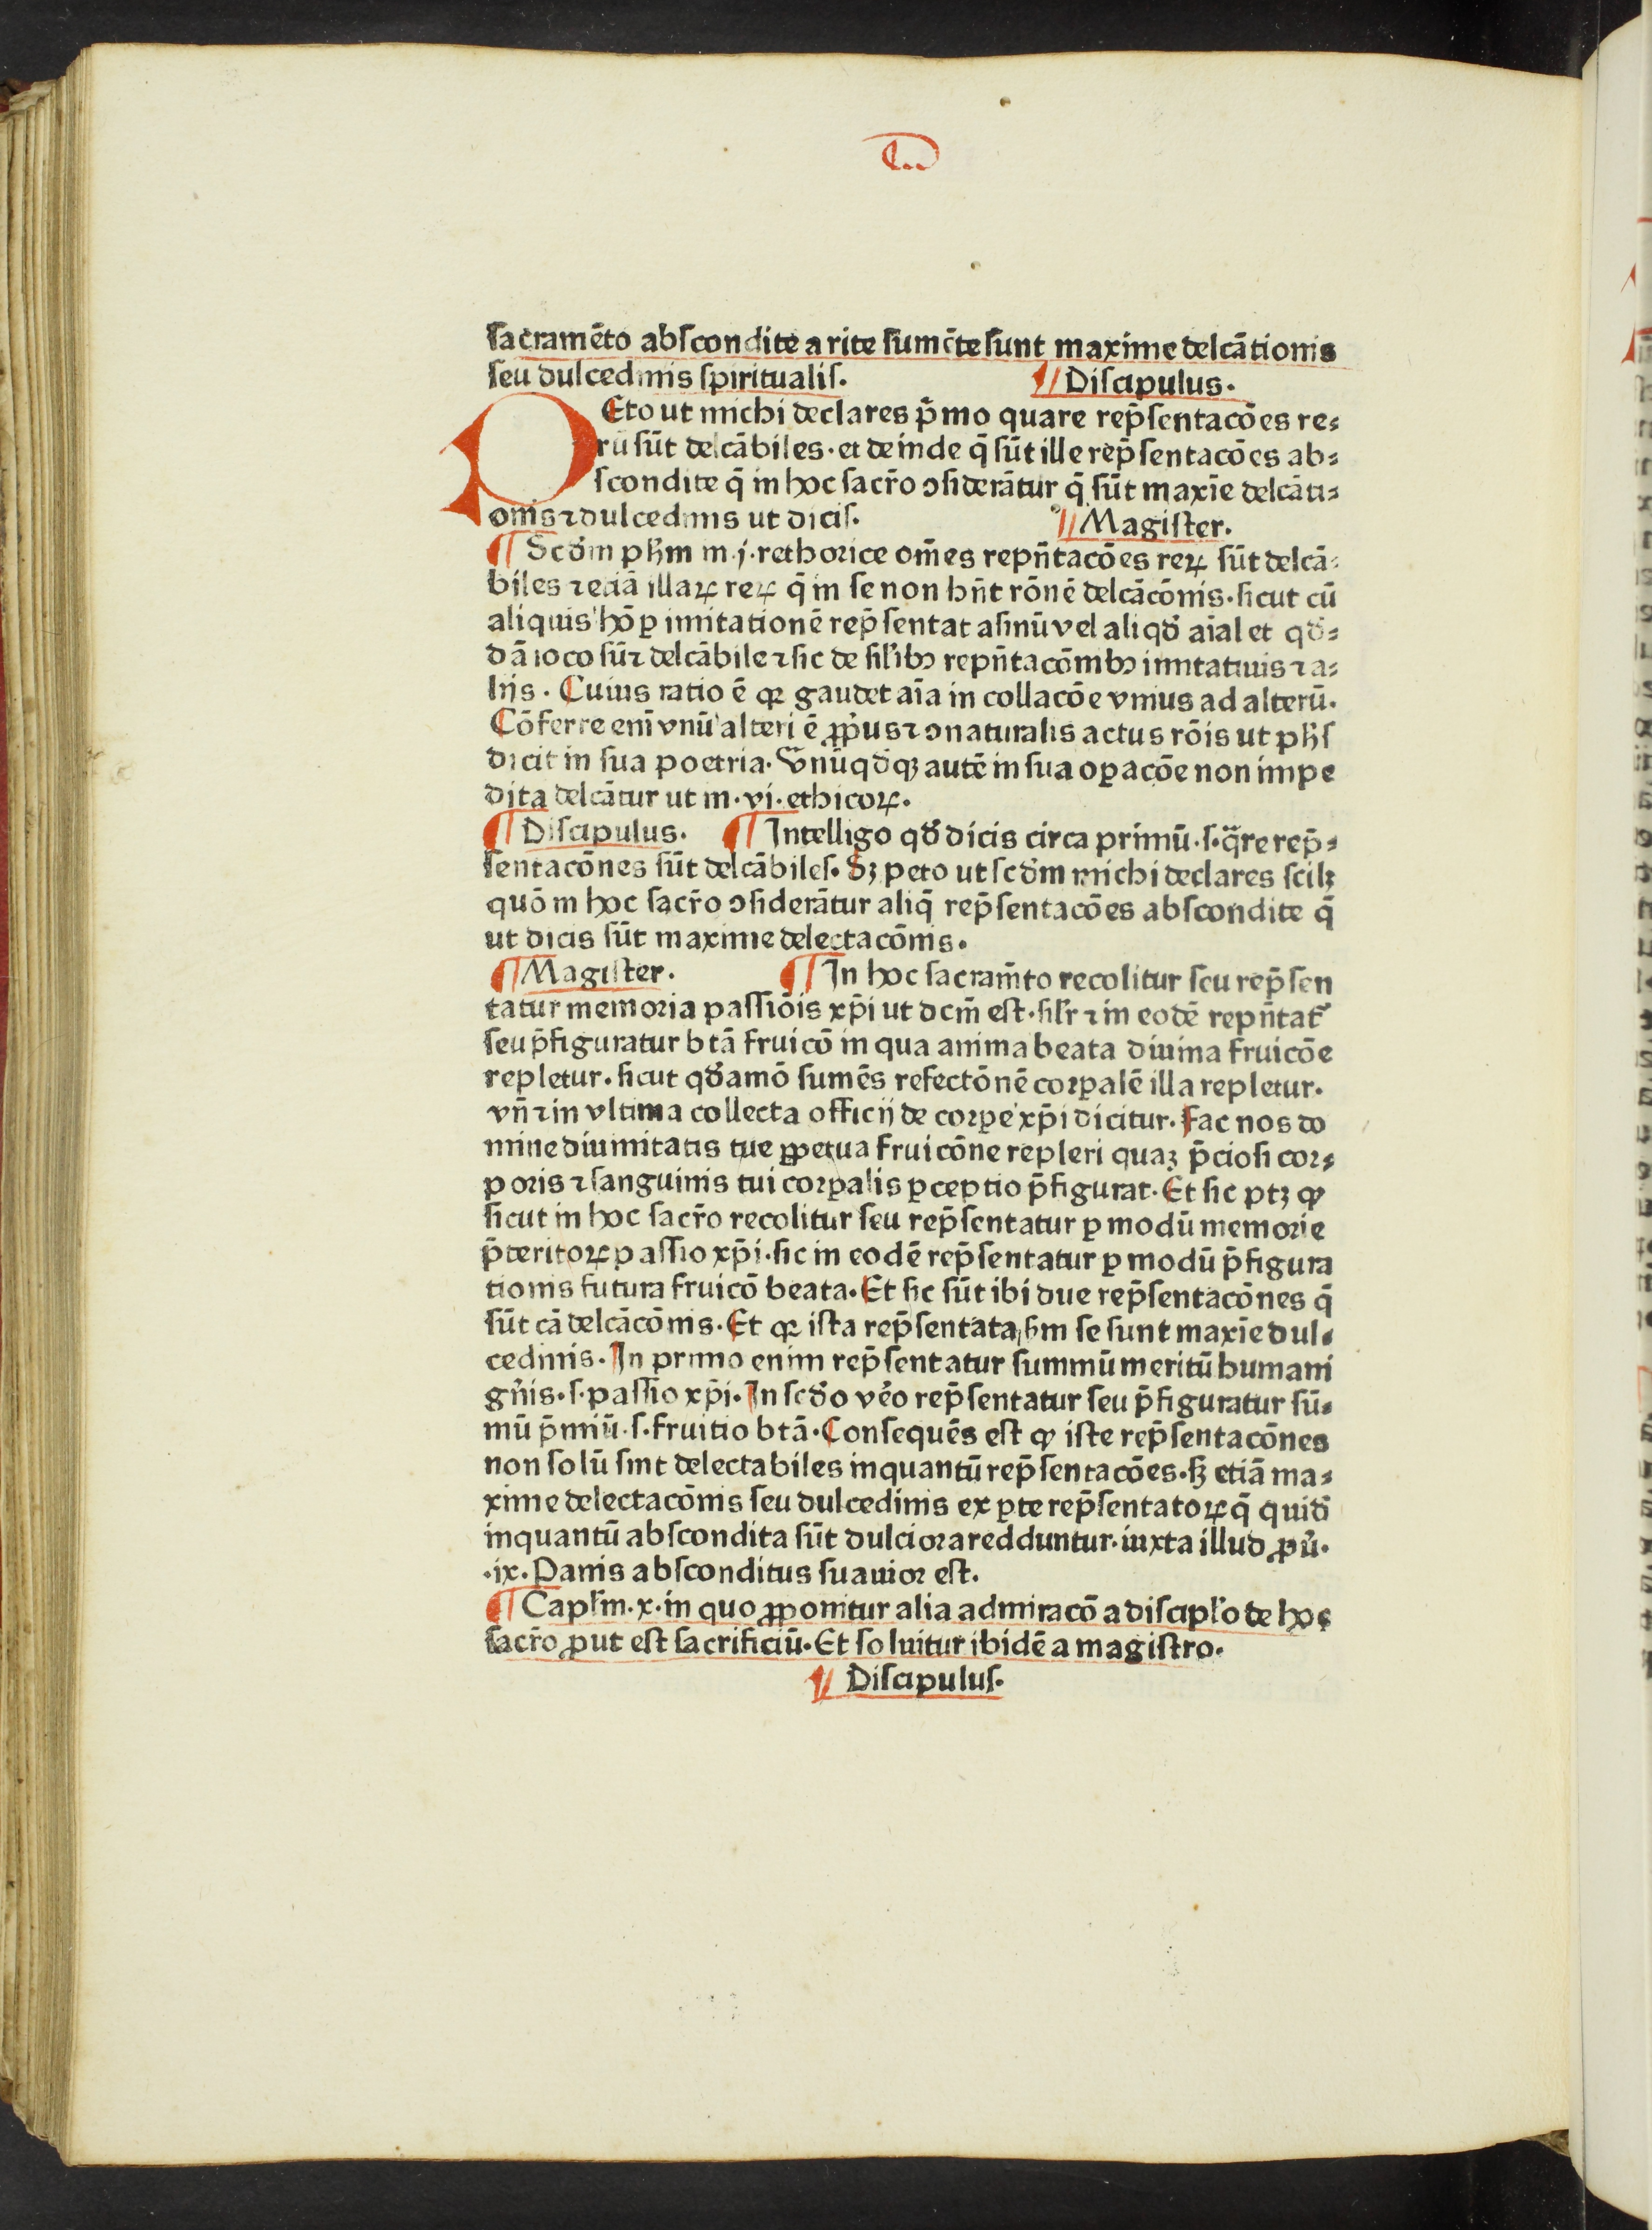 sacramēto abſcondite a rite ſumēte ſunt maxime delcātionis
ſeu dulcedinis ſpiritualiſ. ¶ Diſcipulus.
PEto ut michi declares p̄mo quare rep̄ſentacōes re⸗
rū ſūt delcābiles. et deinde q̄ ſūt ille rep̄ſentacōes ab⸗
ſcondite q̄ in hoc ſacr̄o ꝯſiderātur q̄ ſūt maxīe delcāti⸗
onis ⁊ dulcedinis ut diciſ. ¶ Magiſter.
¶ Scd̄m ph̄m in .j. rethorice om̄es repn̄tacōes reꝝ ſūt delcā⸗
biles ⁊ eciā illaꝝ reꝝ q̄ in ſe non hn̄t rōnē delcācōnis. ſicut cū
aliquis hō ꝑ imitationē rep̄ſentat aſinū vel aliqd̄ aīal et qd̄⸗
dā ioco ſūt delcābile ⁊ ſic de ſil̄ibꝫ repn̄tacōnibꝫ imitatiuis ⁊ a⸗
liis. Cuius ratio ē qꝛ gaudet aīa in collacōe vnius ad alterū.
Cōferre eni vnū alteri ē ꝓpus ⁊ ꝯnaturalis actus rōis ut ph̄ſ
dicit in ſua poetria. Vnūqd̄qꝫ autē in ſua oꝑacōe non impe
dita delcātur ut in .vi. ethicoꝝ.
¶ Diſcipulus. ¶ Intelligo qd̄ dicis circa primū. ſ. q̄re rep̄⸗
ſentacōnes ſūt delcābileſ. Sꝫ peto ut ſcd̄m michi declares ſcilꝫ
quō in hoc ſacr̄o ꝯſiderātur aliq̄ rep̄ſentacōes abſcondite q̄
ut dicis ſūt maxime delectacōnis.
¶ Magiſter. ¶ In hoc ſacram̄to recolitur ſeu rep̄ſen
tatur memoria paſſiōis xp̄i ut dcm̄ eſt. ſil̄r ⁊ in eodē repn̄tat̄
ſeu p̄figuratur btā fruicō in qua anima beata diuina fruicōe
repletur. ſicut qd̄amō ſumēs refectōnē corꝑalē illa repletur.
vn̄ ⁊ in vltima collecta officij de corꝑe xp̄i dicitur. Fac nos do
mine diuinitatis tue ꝑpetua fruicōne repleri quaꝫ p̄cioſi cor⸗
poris ⁊ ſanguinis tui corꝑalis ꝑceptio p̄figurat. Et ſic ptꝫ ꝙ
ſicut in hoc ſacr̄o recolitur ſeu rep̄ſentatur ꝑ modū memorie
p̄teritoꝝ paſſio xp̄i. ſic in eodē rep̄ſentatur ꝑ modū p̄figura
tionis futura fruicō beata. Et ſic ſūt ibi due rep̄ſentacōnes q̄
ſūt cā delcācōnis. Et qꝛ iſta rep̄ſentata ẜm ſe ſunt maxīe dul⸗
cedinis. In primo enim rep̄ſentatur ſummū meritū humani
gn̄is. ſ. paſſio xp̄i. In ſcd̄o vēo rep̄ſentatur ſeu p̄figuratur ſū⸗
mū p̄miū. ſ. fruitio btā. Conſequēs eſt ꝙ iſte rep̄ſentacōnes
non ſolū ſint delectabiles inquantū rep̄ſentacōes. ſꝫ etiā ma⸗
xime delectacōnis ſeu dulcedinis ex ꝑte rep̄ſentatoꝝ q̄ quid̄
inquantū abſcondita ſūt dulciora redduntur. iuxta illud ꝓū.
.ix. Panis abſconditus ſuauior eſt.
¶ Capl̄m .x. in quo ꝓponitur alia admiracō a diſcipl̄o de hoc
ſacr̄o ꝓut eſt ſacrificiū. Et ſoluitur ibidē a magiſtro.
¶ Diſcipuluſ.